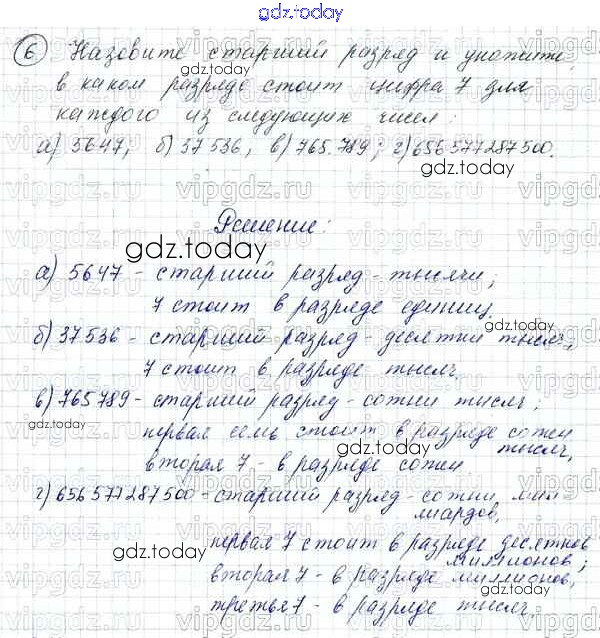 gdz.today
6 Назовите старший разряд и укажите,
gdz.today
в каком разряде стоит цифра 7 для
каждого из следующих чисел:
а) 5647, б) 37 536, в) 765.789; г) 656 577 287 500.
gdz.today
Решение:
gdz.today
а) 5647 - старший разряд - тысячи;
7 стоит в разряде единиц.
gdz.today
б) 37 536 - старший разряд - десятки тысяч,
7 стоит в разряде тысяч.
в) 765 789 - старший разряд - сотни тысяч;
первая семь стоит в разряде сотен
тысяч,
gdz.today
вторая 7 - в разряде сотен.
г) 656 577 287 500 - старший разряд - сотни мил-
лиардов,
первая 7 стоит в разряде десятков
миллионов;
gdz.today
вторая 7 - в разряде миллионов,
третья 7 - в разряде тысяч.
gdz.today